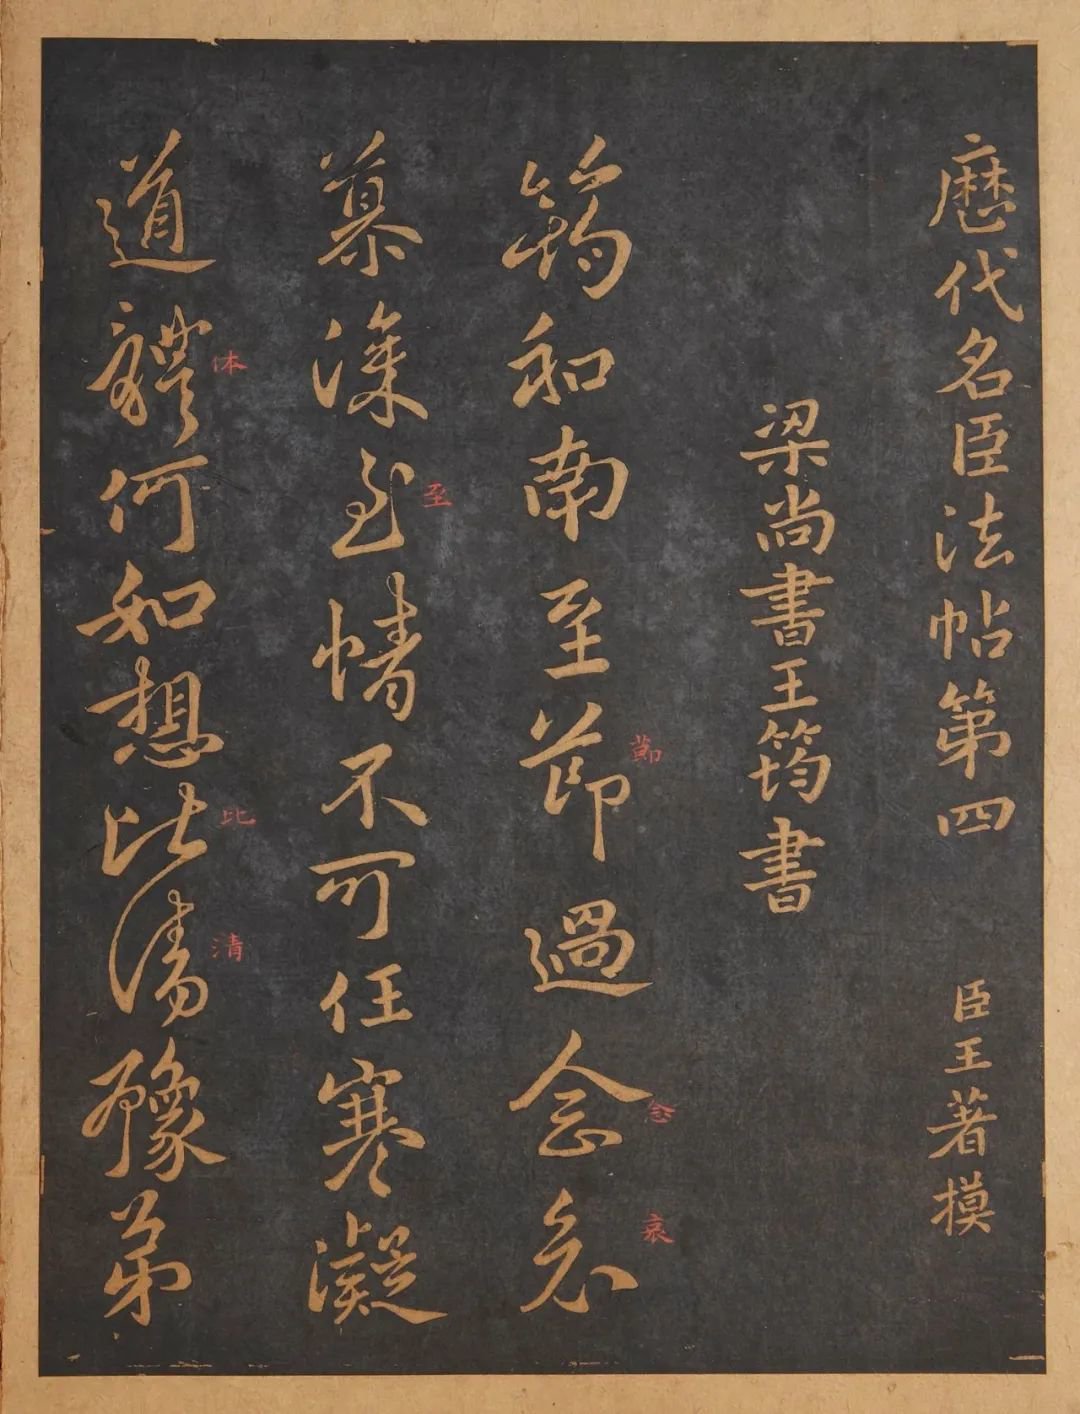 歷代名臣法帖第四
臣王著摸
梁尚書王筠書
筠和南至節過念哀
節
念
哀
慕深至情不可任寒凝
至
道體何如想比清豫弟
体
比
清